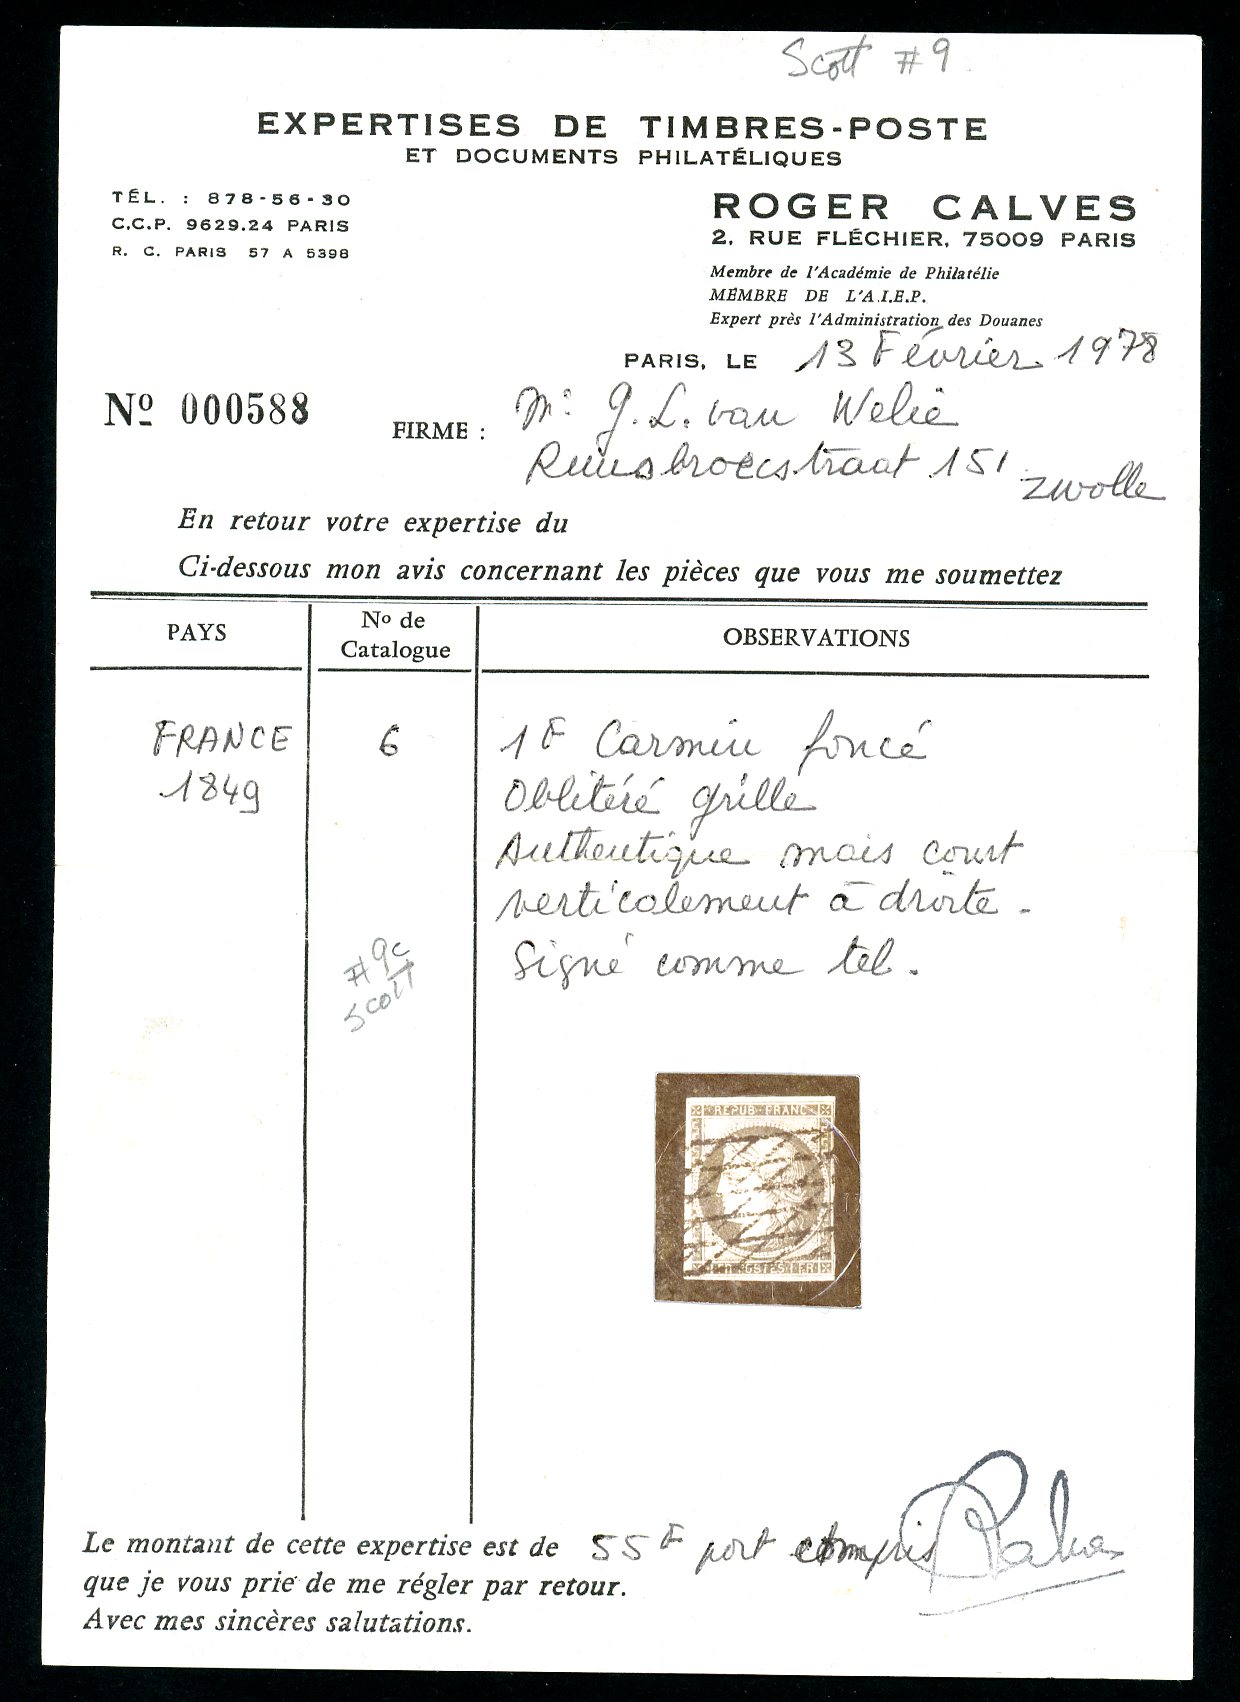 Scott #9
EXPERTISES DE TIMBRES-POSTE
ET DOCUMENTS PHILATÉLIQUES
TÉL. : 878-56-30
C.C.P. 9629.24 PARIS
R. C. PARIS 57 A 5398
ROGER CALVES
2, RUE FLÉCHIER, 75009 PARIS
Membre de l'Académie de Philatélie
MEMBRE DE L'A.I.E.P.
Expert près l'Administration des Douanes
PARIS, LE 13 Février 1978
Nº 000588
FIRME : Mr G. L. van Welie
straat 151 Zwolle
En retour votre expertise du
Ci-dessous mon avis concernant les pièces que vous me soumettez
PAYS
Nº de
Catalogue
OBSERVATIONS
FRANCE
1849
6
1F Carmin foncé
Oblitéré grille
Authentique mais court
verticalement à droite.
Signé comme tel.
#9c
Scott
REPUB FRANC
Le montant de cette expertise est de 55F port compris
que je vous prie de me régler par retour.
Avec mes sincères salutations.